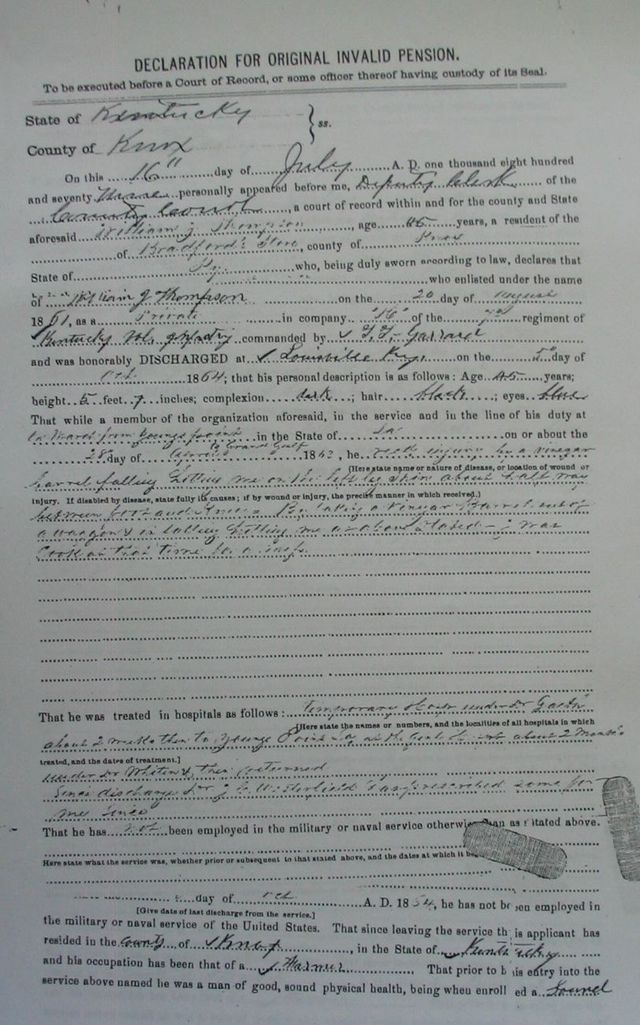 DECLARATION FOR ORIGINAL INVALID PENSION.
To be executed before a Court of Record, or some officer thereof having custody of its Seal.
State of Kentucky } ss.
County of Knox
On this 16" day of July A. D. one thousand eight hundred
and seventy three personally appeared before me, Deputy Clerk of the
County Court, a court of record within and for the county and State
aforesaid William J Thompson, age 45 years, a resident of the
of Bradford's Store, county of Knox
State of Ky. who, being duly sworn according to law, declares that
who enlisted under the name
of William J Thompson on the 20 day of August
1861, as a Private in company of the 7th regiment of
Kentucky Vol. Infantry commanded by T. T. Garrard
and was honorably DISCHARGED at Louisville Ky. on the 5" day of
Oct 1864; that his personal description is as follows: Age 45 years;
height 5 feet 7 inches; complexion dark; hair black; eyes blue
That while a member of the organization aforesaid, in the service and in the line of his duty at
from Youngs point in the State of La on or about the
28" day of to Grand Gulf 1863, he by a vinegar
[Here state name or nature of disease, or location of wound or
barrel falling hitting me on the left shin about half way
injury. If disabled by disease, state fully its causes; if by wound or injury, the precise manner in which received.]
between foot and knee. By taking a vinegar Barrel out of
a waggon & in falling hitting me as above stated I was
Cook at that time for a mess
That he was treated in hospitals as follows: temporary under Dr
[Here state the names or numbers, and the localities of all hospitals in which
about 2 then to Youngs Point La about 2 Months
treated, and the dates of treatment.]
under Dr then returned
Since discharge Dr J prescribed some for
me since
That he has not been employed in the military or naval service otherwise than as stated above.
Here state what the service was, whether prior or subsequent to that stated above, and the dates at which it be
day of Oct A. D. 1864, he has not been employed in
[Give date of last discharge from the service.]
the military or naval service of the United States. That since leaving the service this applicant has
resided in the County of Knox, in the State of Kentucky
and his occupation has been that of a Farmer That prior to his entry into the
service above named he was a man of good, sound physical health, being when enrolled a Sound